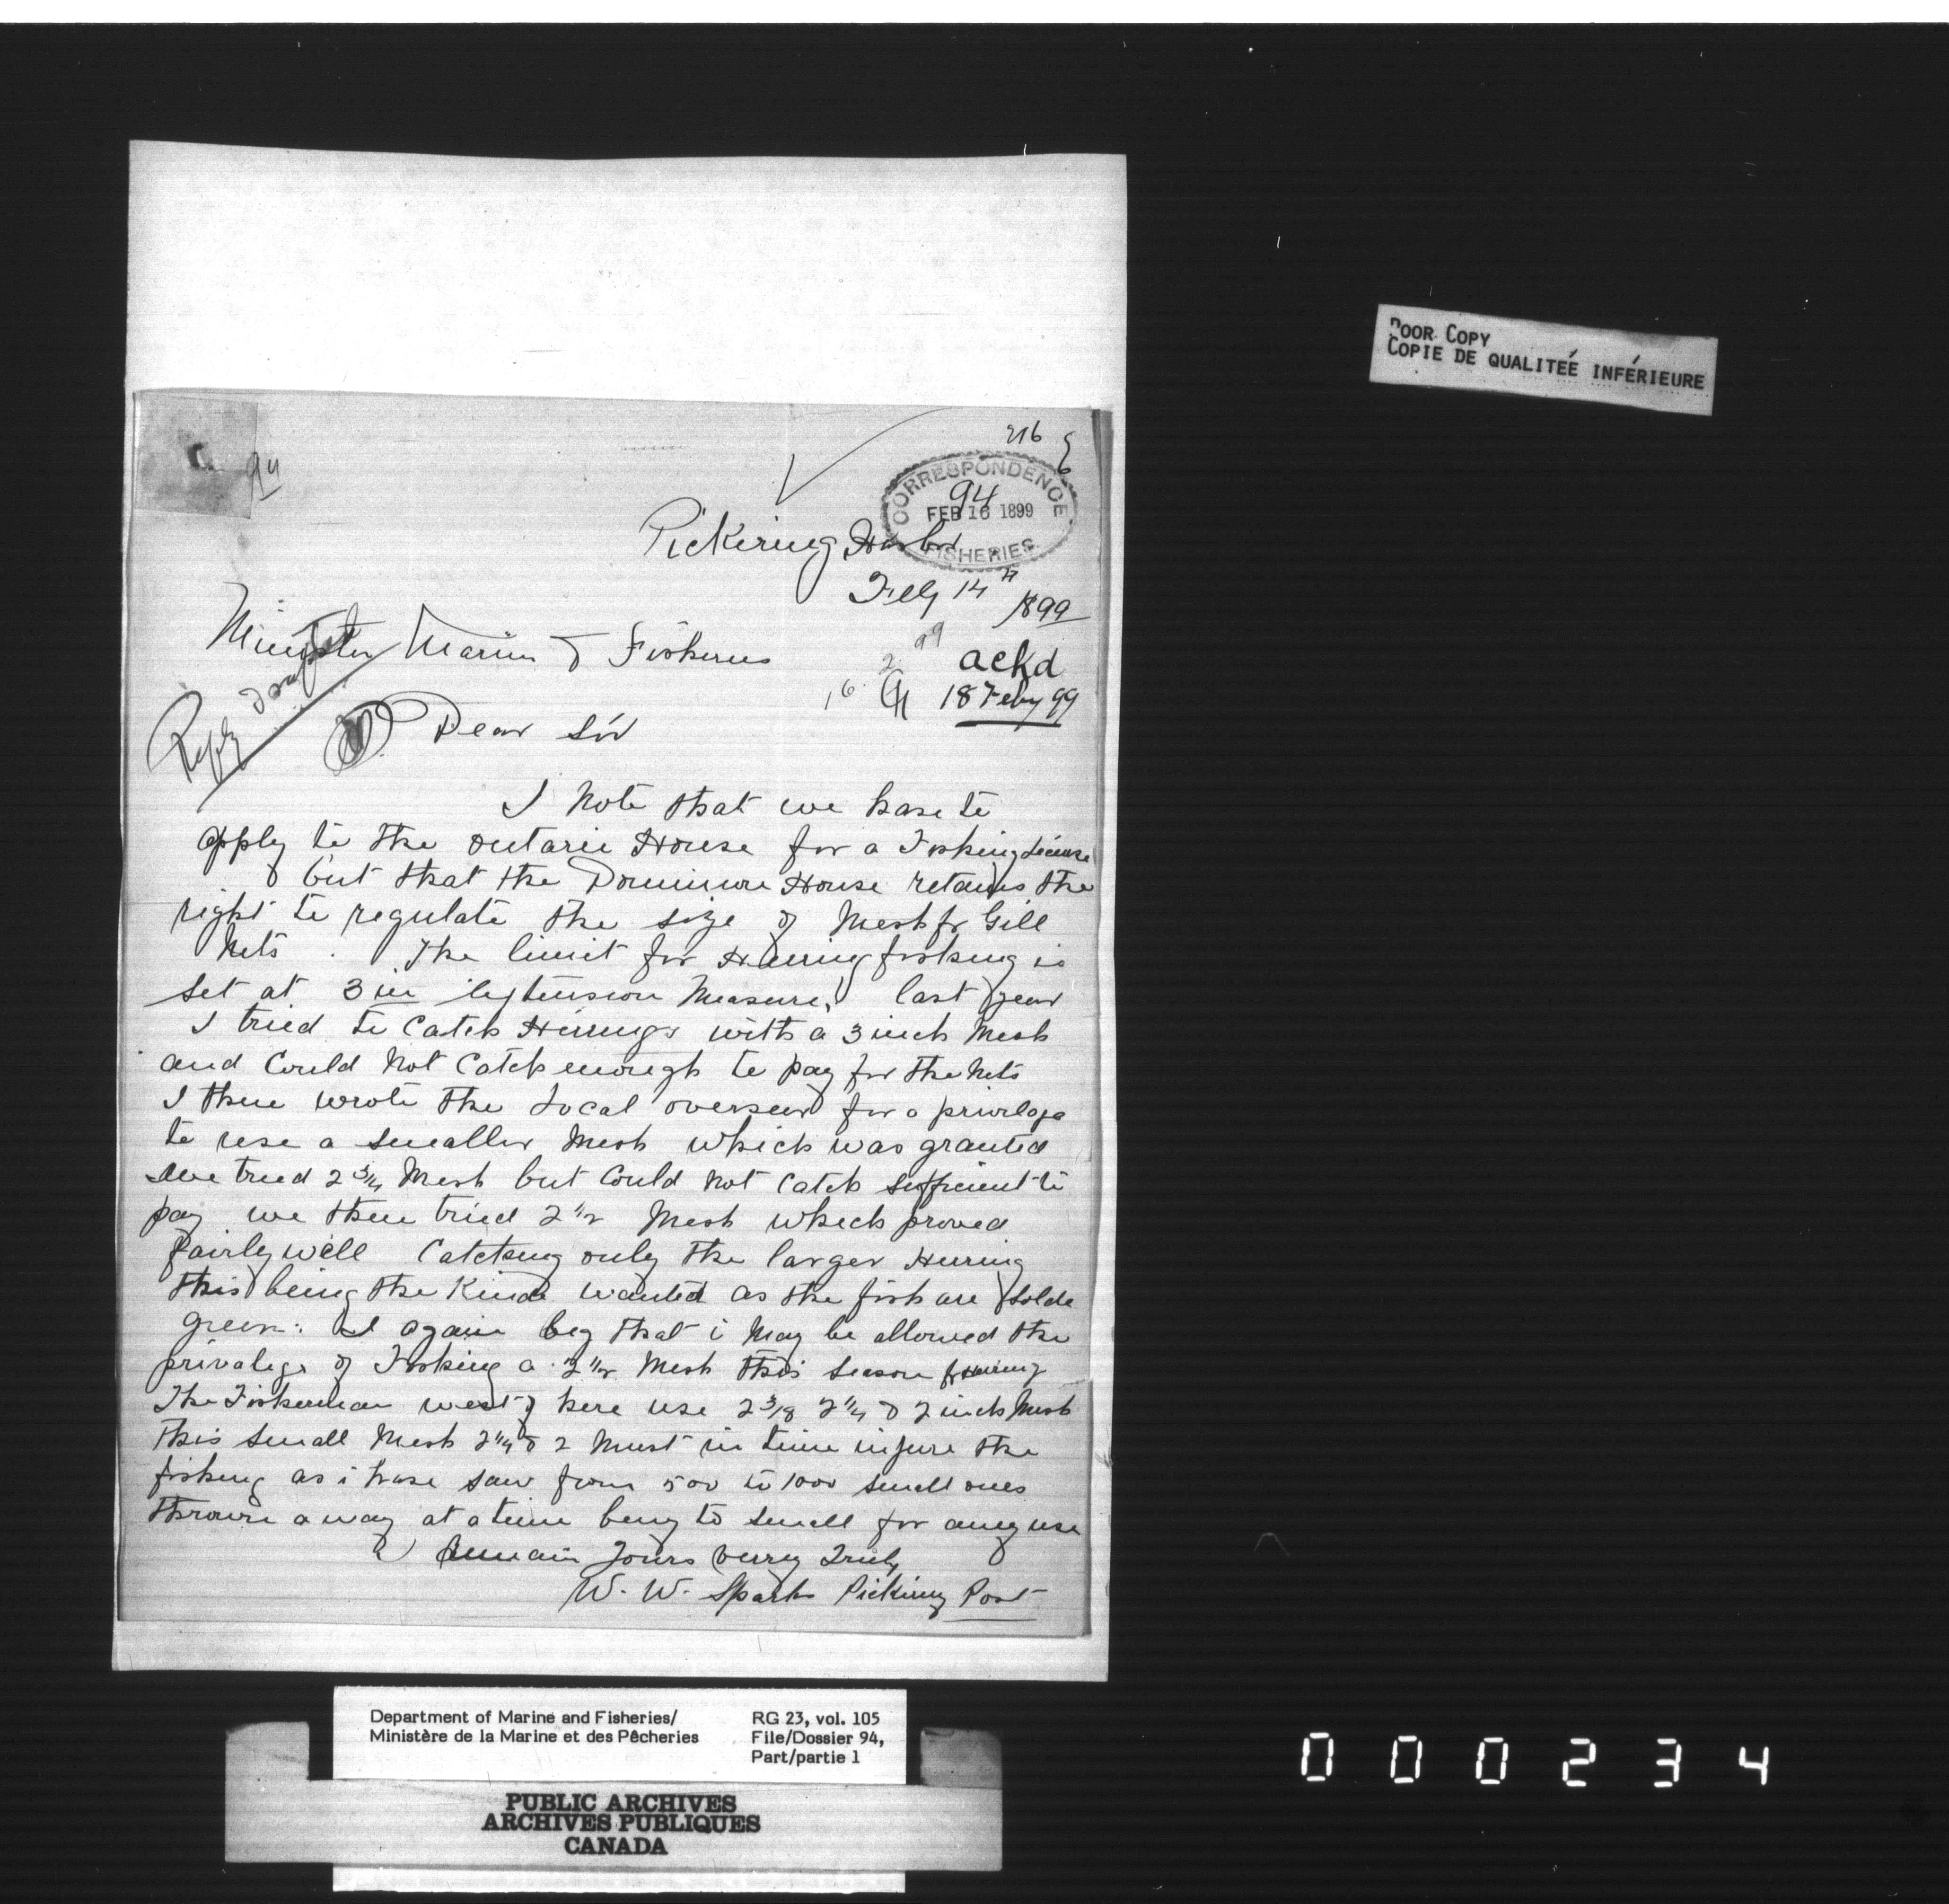 POOR COPY
COPIE DE QUALITEÉ INFÉRIEURE
216
94
CORRESPONDENCE
94
FEB 16 1899
FISHERIES
Pickering Harbor
Feby 14th 1899
Minister Marine & Fisheries
ackd
18 Feby 99
Reply
Dear Sir
I Note that we have to
apply to the Ontario House for a Fishing License
but that the Dominion House retains the
right to regulate the size of Mesh for Gill
Nets. The limit for Herring fishing is
set at 3 in extension Measure, last year
I tried to Catch Herrings with a 3 inch Mesh
and Could Not Catch enough to pay for the Nets
I then wrote the Local overseer for a privilage
to use a smaller Mesh which was granted
we tried 2 3/4 Mesh but Could Not Catch sufficient to
pay we then tried 2 1/2 Mesh which proved
fairly well Catching only the larger Herring
this being the Kinde wanted as the fish are solde
green. I again beg that i May be allowed the
privalige of Fishing a 2 1/2 Mesh this season for Herring
The Fisherman west of here use 2 3/8 2 1/4 & 2 inch Mesh
This small Mesh 2 1/4 & 2 Must in time injure the
fishing as i have saw from 500 to 1000 small ones
thrown away at a time being to small for any use
I Remain Yours verry Truly
W. W. Sparks Pickering Post
Department of Marine and Fisheries/
Ministère de la Marine et des Pêcheries
RG 23, vol. 105
File/Dossier 94,
Part/partie 1
PUBLIC ARCHIVES
ARCHIVES PUBLIQUES
CANADA
000234